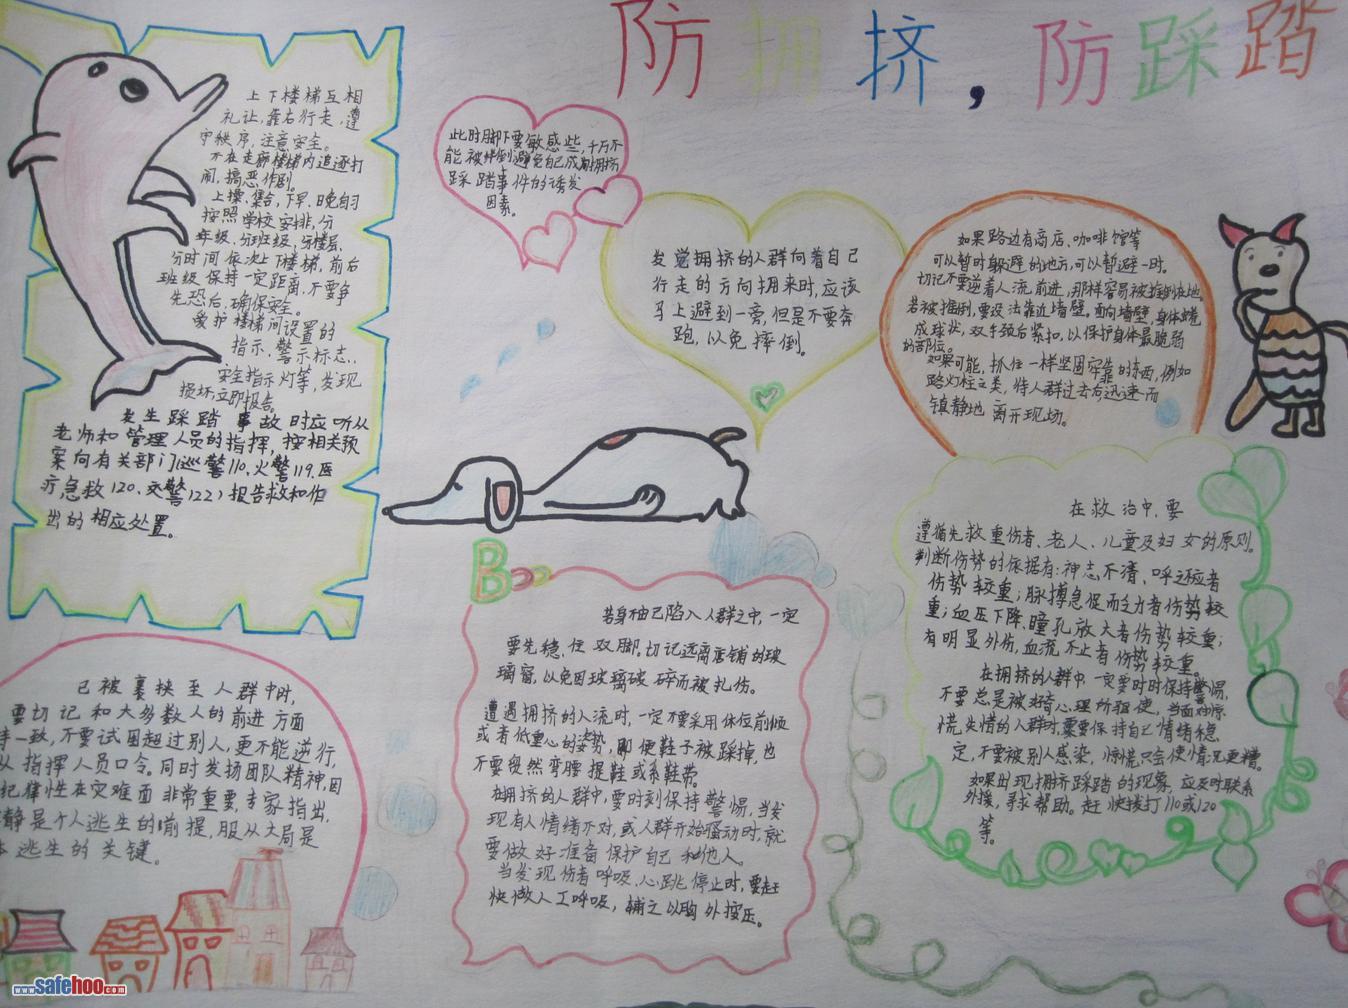 防拥挤，防踩踏
上下楼梯互相
礼让，靠右行走，遵
守秩序，注意安全。
不在走廊楼梯内追逐打
闹，搞恶作剧。
上操、集合，下早、晚自习
按照学校安排，分
年级、分班级，分楼层、
分时间依次上下楼梯，前后
班级保持一定距离，不要争
先恐后，确保安全。
爱护楼梯间设置的
指示、警示标志、
安全指示灯等，发现
损坏立即报告。
发生踩踏事故时应听从
老师和管理人员的指挥，按相关预
案向有关部门（巡警110、火警119、医
疗急救120、交警122）报告救和作
出的相应处置。
此时脚下要敏感些，千万不
能被绊倒避免自己成为拥挤
踩踏事件的诱发
因素。
发觉拥挤的人群向着自己
行走的方向拥来时，应该
马上避到一旁，但是不要奔
跑，以免摔倒。
如果路边有商店、咖啡馆等
可以暂时躲避的地方，可以暂避一时。
切记不要逆着人流前进，那样容易被推倒在地。
若被推倒，要设法靠近墙壁。面向墙壁，身体蜷
成球状，双手颈后紧扣，以保护身体最脆弱
的部位。
如果可能，抓住一样坚固牢靠的东西，例如
路灯柱之类，待人群过去后迅速而
镇静地离开现场。
在救治中，要
遵循先救重伤者、老人、儿童及妇女的原则。
判断伤势的依据有：神志不清、呼之应者
伤势较重；脉搏急促而乏力者伤势较
重；血压下降、瞳孔放大者伤势较重；
有明显外伤，血流不止者伤势较重。
在拥挤的人群中一定要时时保持警惕，
不要总是被好奇心理所驱使。当面对惊
慌失措的人群时，需要保持自己情绪稳
定，不要被别人感染，惊慌只会使情况更糟。
如果出现拥挤踩踏的现象，应及时联系
外援，寻求帮助。赶快拨打110或120
等。
B
若身柚已陷入人群之中，一定
要先稳住双脚。切记远离店铺的玻
璃窗，以免因玻璃破碎而被扎伤。
遭遇拥挤的人流时，一定不要采用体位前倾
或者低重心的姿势，即便鞋子被踩掉，也
不要贸然弯腰提鞋或系鞋带。
在拥挤的人群中，要时刻保持警惕，当发
现有人情绪不对，或人群开始骚动时，就
要做好准备保护自己和他人。
当发现伤者呼吸、心跳停止时，要赶
快做人工呼吸，辅之以胸外按压。
已被裹挟至人群中时，
要切记和大多数人的前进方面
持一致，不要试图超过别人，更不能逆行，
从指挥人员口令。同时发扬团队精神，因
纪律性在灾难面非常重要，专家指出，
静是个人逃生的前提，服从大局是
逃生的关键。
www.safehoo.com